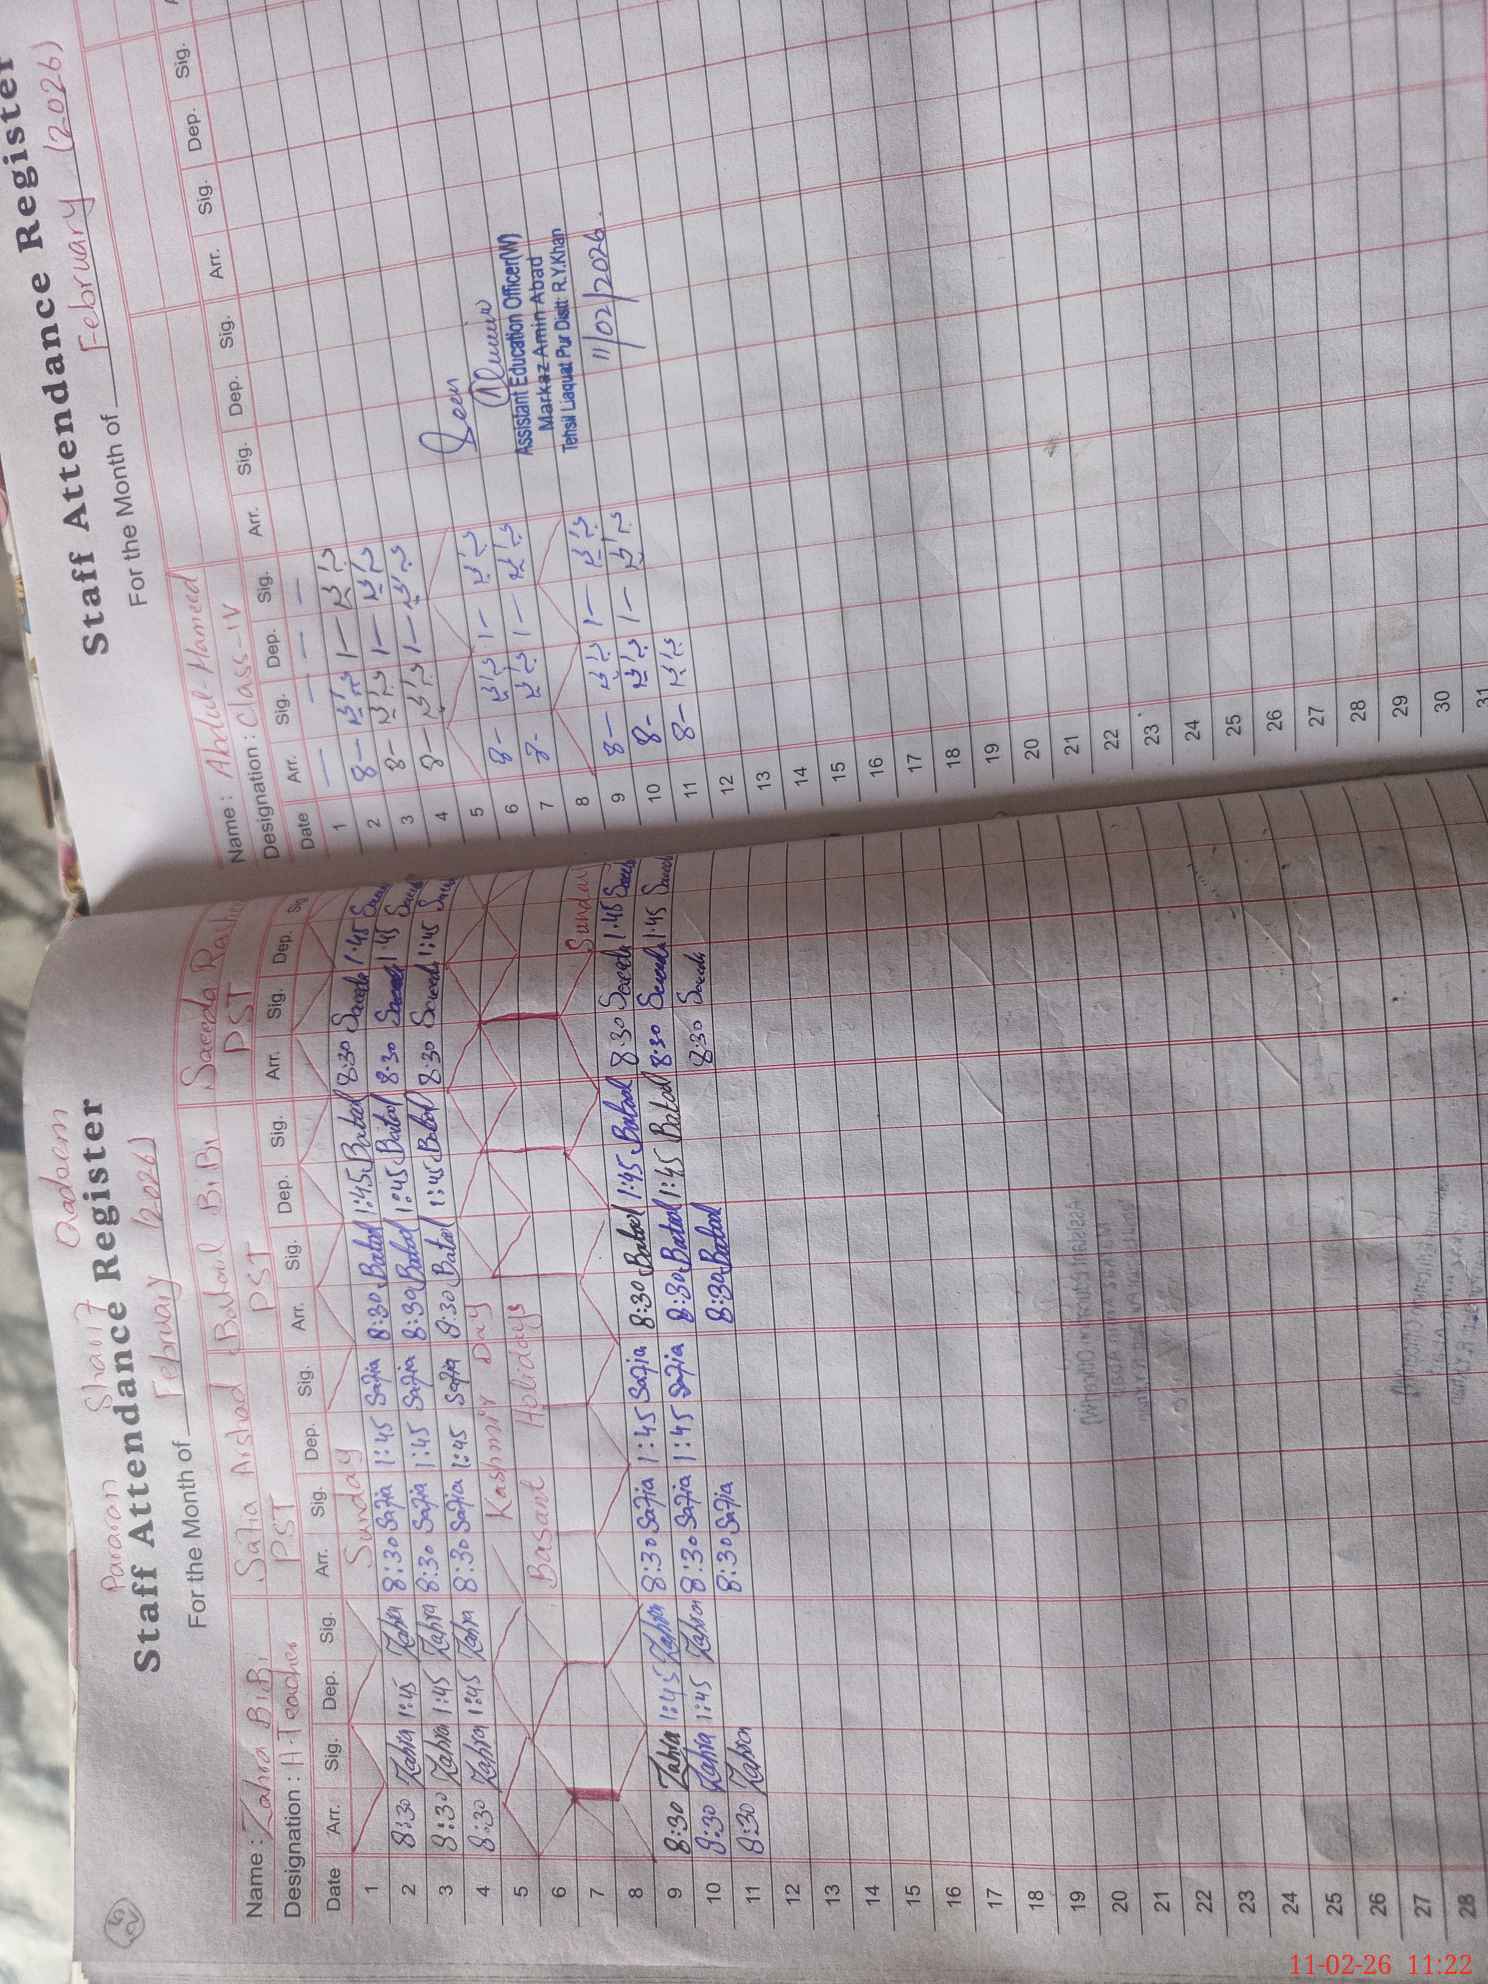 52
Pararan Sharif Qadeem
Staff Attendance Register
For the Month of February (2026)
Name : Zahra BiBi Safia Arshad Batool BiBi Saeeda
Designation : A-Teacher PST PST PST
Date Arr. Sig. Dep. Sig. Arr. Sig. Dep. Sig. Arr. Sig. Dep. Sig. Arr. Sig. Dep. Sig
1 Sunday
2 8:30 Zahra 1:45 Zahra 8:30 Safia 1:45 Safia 8:30 Batool 1:45 Batool 8:30 Saeeda 1:45
3 8:30 Zahra 1:45 Zahra 8:30 Safia 1:45 Safia 8:30 Batool 1:45 Batool 8:30 Saeeda 1:45
4 8:30 Zahra 1:45 Zahra 8:30 Safia 1:45 Safia 8:30 Batool 1:45 Batool 8:30 Saeeda 1:45
5 Kashmir Day
6 Basant Holidays
7
8 Sunday
9 8:30 Zahra 1:45 Zahra 8:30 Safia 1:45 Safia 8:30 Batool 1:45 Batool 8:30 Saeeda 1:45
10 8:30 Zahra 1:45 Zahra 8:30 Safia 1:45 Safia 8:30 Batool 1:45 Batool 8:30 Saeeda 1:45
11 8:30 Zahra 8:30 Safia 8:30 Batool 8:30 Saeeda
12
13
14
15
16
17
18
19
20
21
22
23
24
25
26
27
28
Staff Attendance Register
For the Month of February (2026)
Name : Abdul Hameed
Designation : Class-IV
Date Arr. Sig. Dep. Sig. Arr. Sig. Dep. Sig. Arr. Sig. Dep. Sig.
1
2 8- 1-
3 8- 1-
4 8- 1-
5
6 8- 1-
7 8- 1-
8
9 8- 1-
10 8- 1-
11 8-
12
13
14
15
16
17
18
19
20
21
22
23
24
25
26
27
28
29
30
31
Seen
Assistant Education Officer(W)
Markaz Amin Abad
Tehsil Liaquat Pur Distt: R.Y.Khan
11/02/2026
11-02-26 11:22